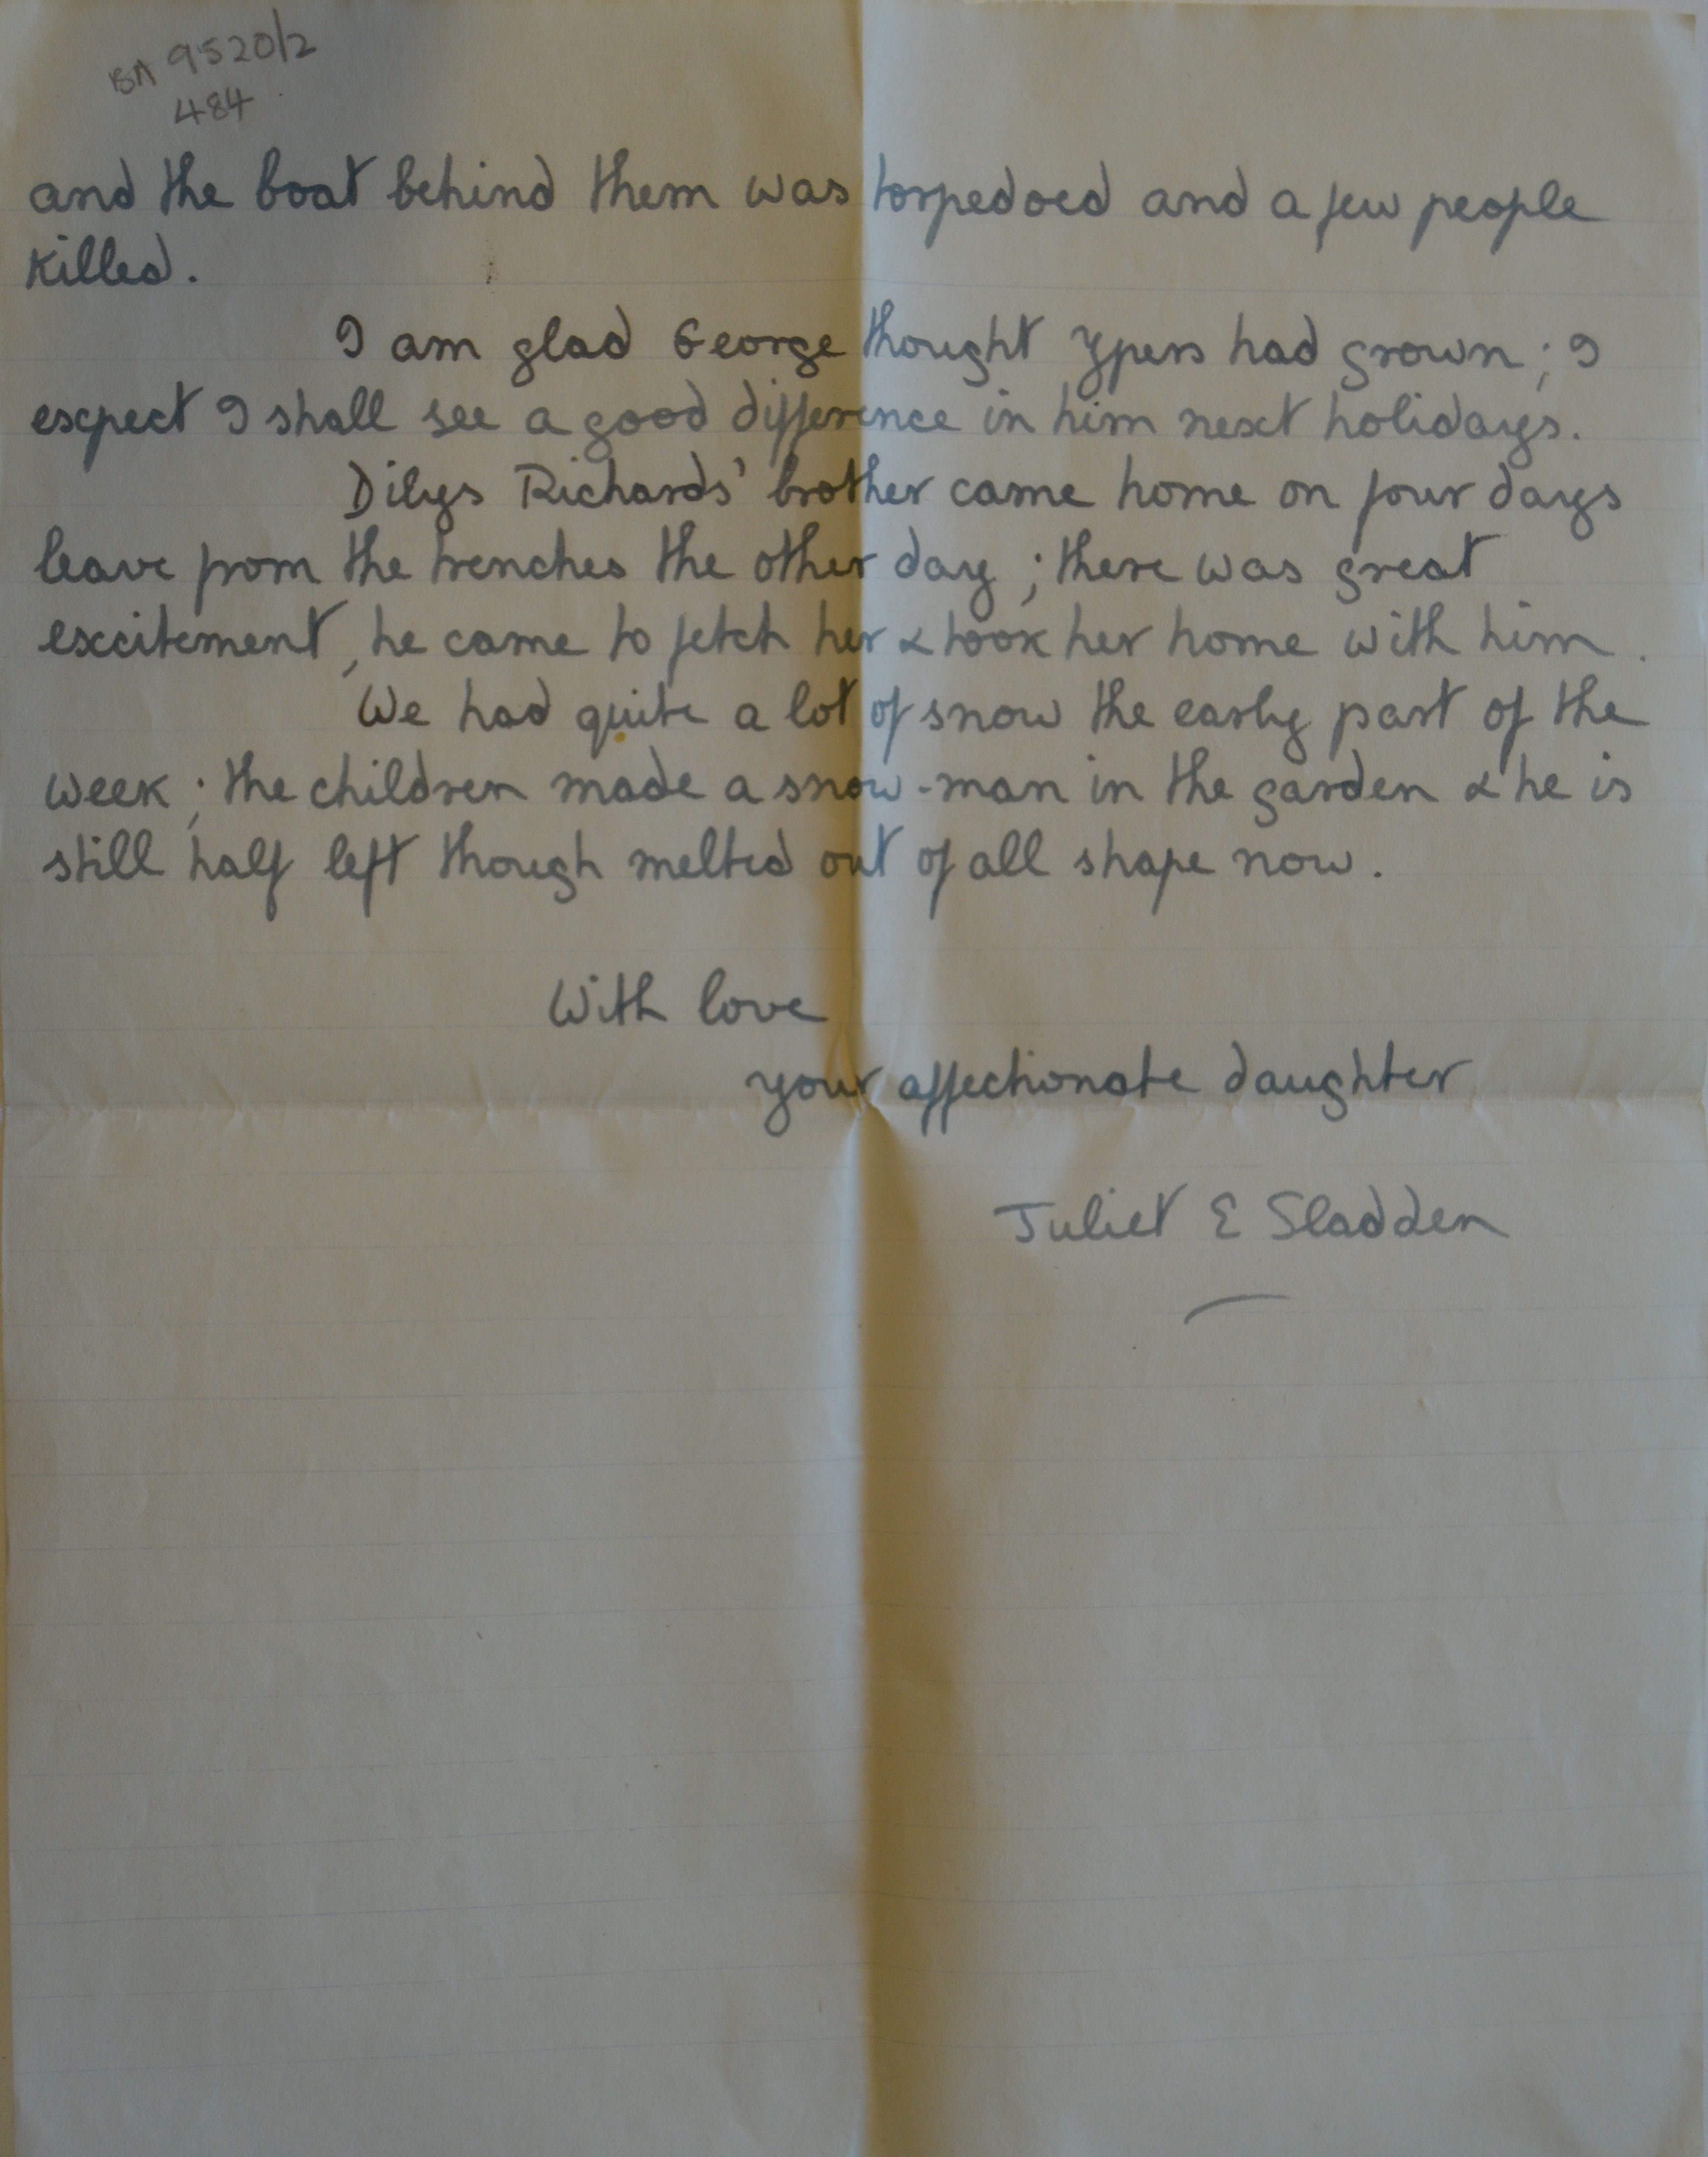 BA 9520/2
484
and the boat behind them was torpedoed and a few people
killed.
I am glad George thought Ypers had grown; I
expect I shall see a good difference in him next holidays.
Dilys Richards' brother came home on four days
leave from the trenches the other day; there was great
excitement, he came to fetch her & took her home with him.
We had quite a lot of snow the early part of the
week; the children made a snow-man in the garden & he is
still half left though melted out of all shape now.
With love
your affectionate daughter
Juliet E Sladden